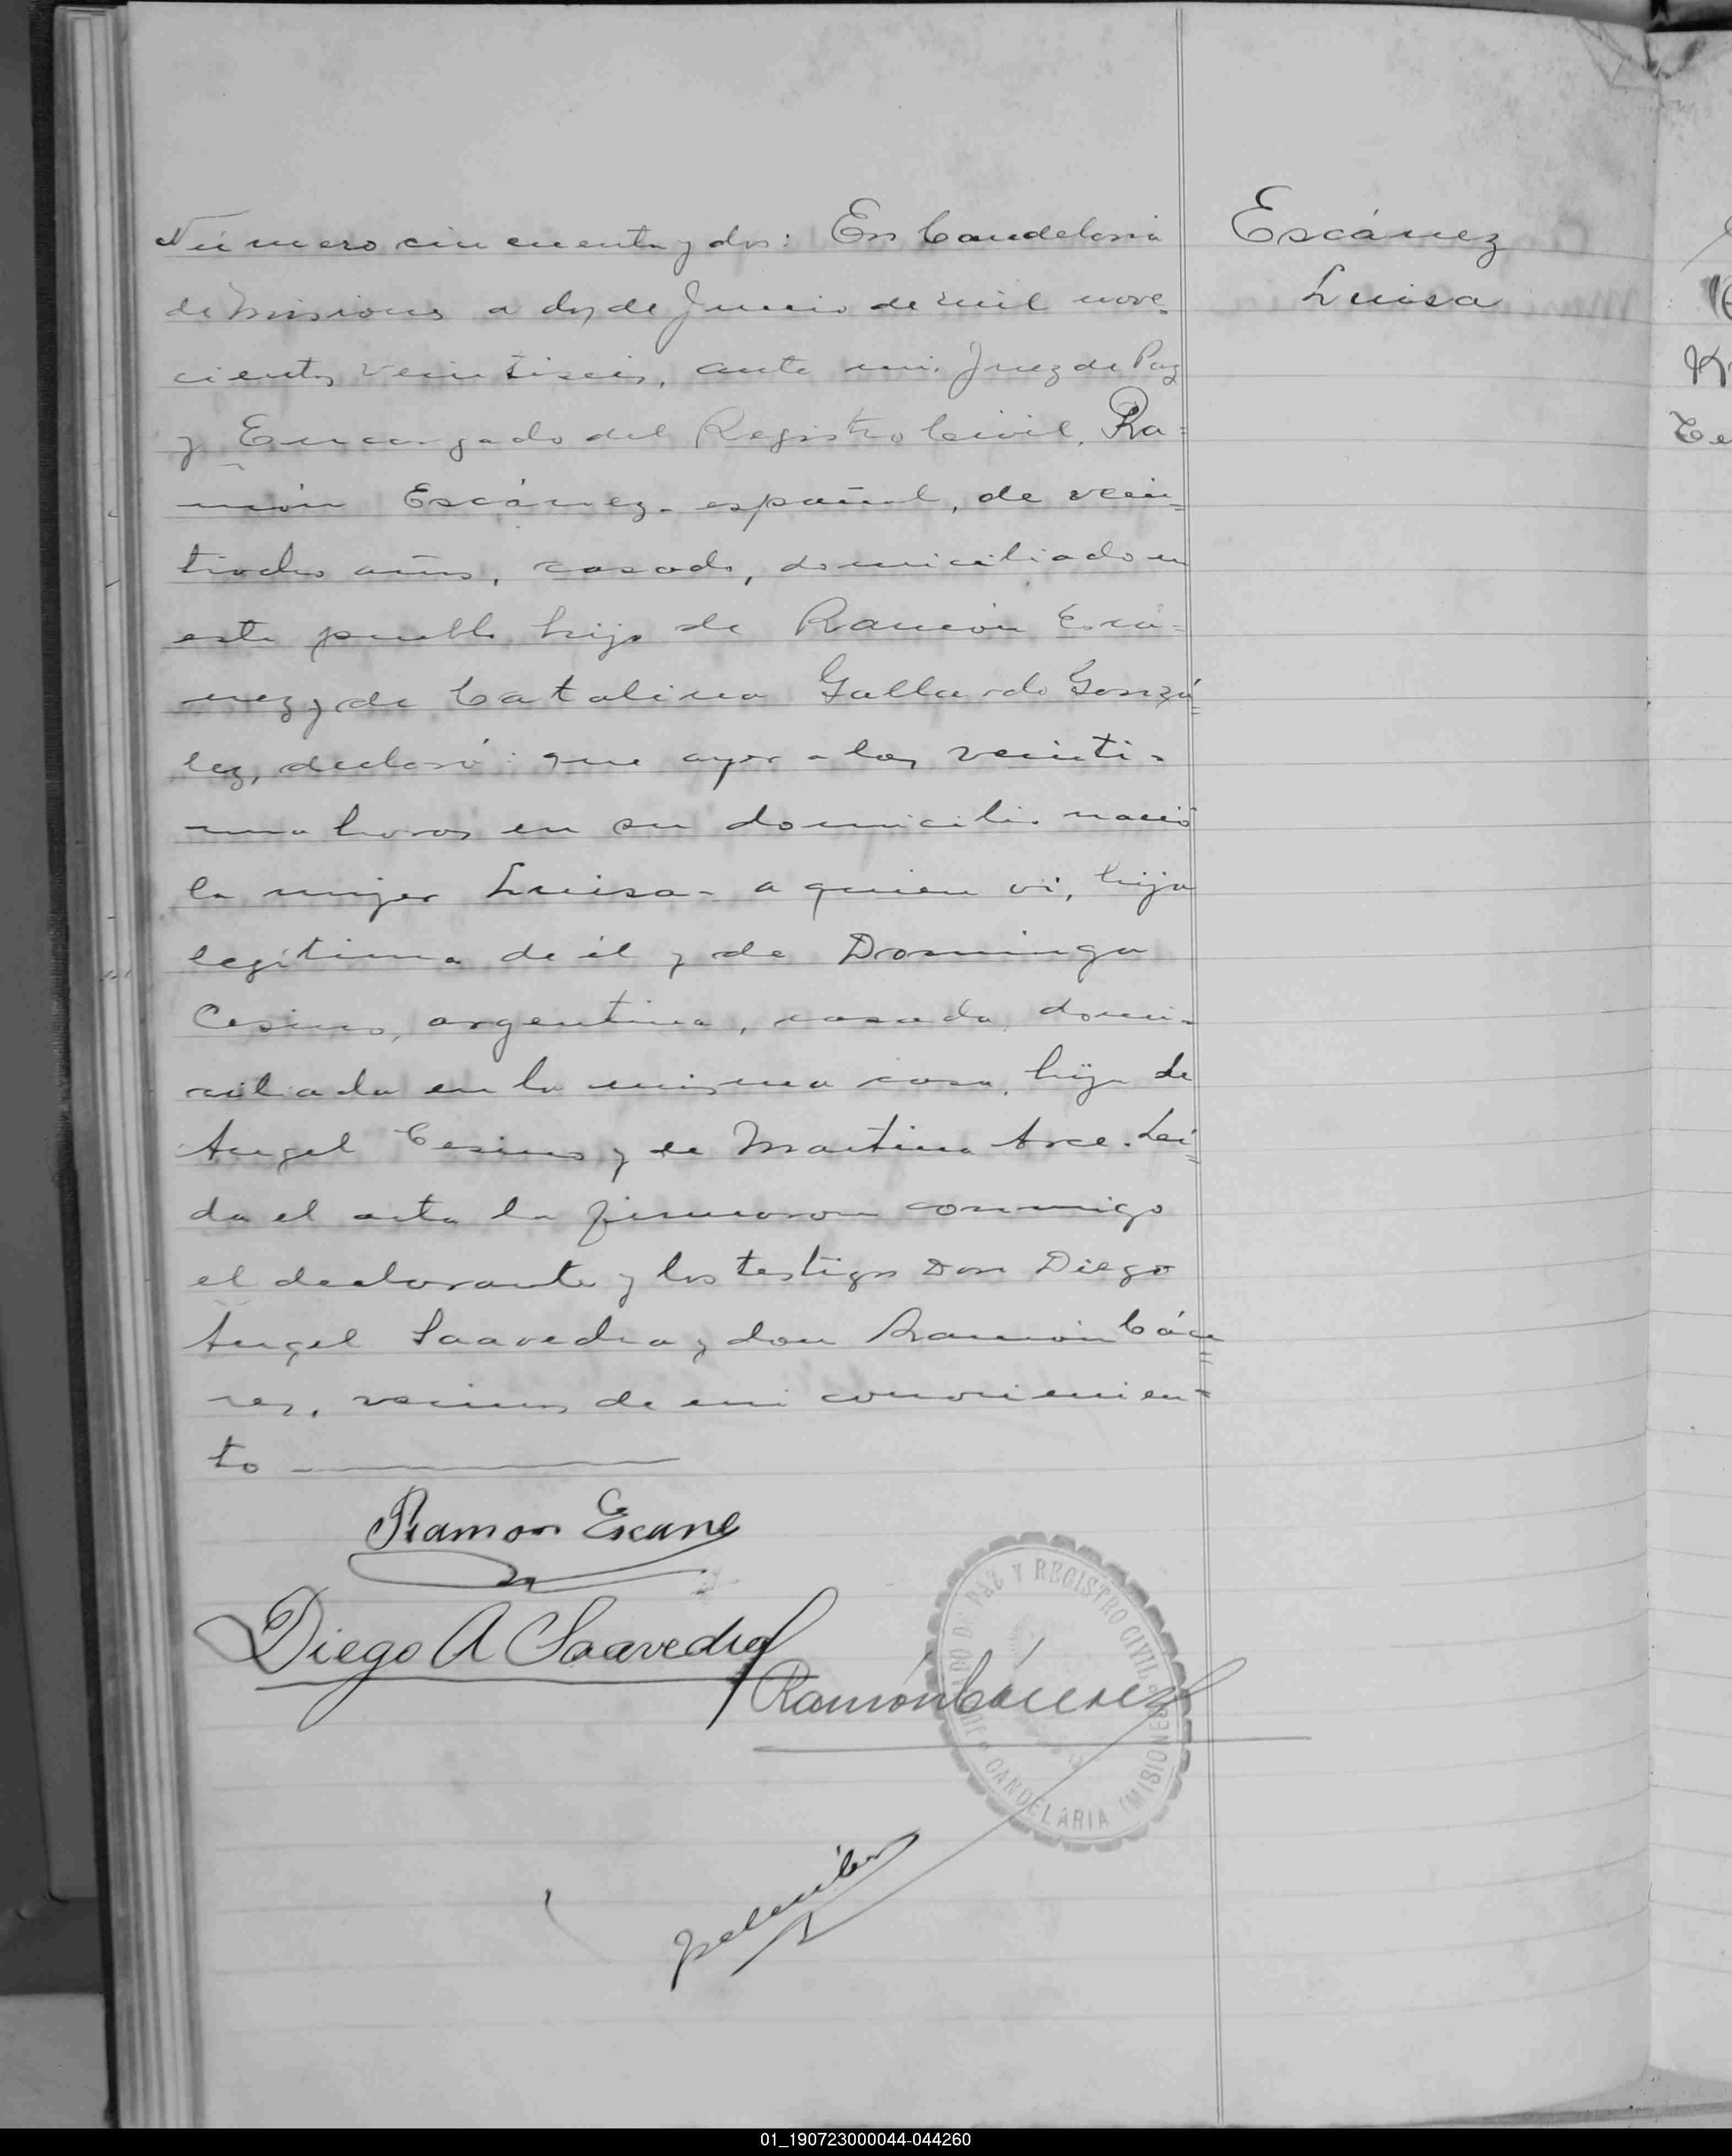 Número cincuenta y dos: En Candelaria
de Misiones a dos de Junio de mil nove=
cientos veintiseis, ante mi, Juez de Paz
y Encargado del Registro Civil, Ra=
món Escánez- español, de vein=
tiocho años, casado, domiciliado en
este pueblo, hijo de Ramón Escá=
nez y de Catalina Gallardo Gonzá=
lez, declaró: que ayer a las veinti=
una horas en su domicilio nació
la mujer Luisa- a quien vi, hija
legítima de él y de Dominga
Cesino, argentina, casada, domi=
ciliada en la misma casa, hija de
Angel Cesino y de Martina Arce. Leí=
da el acta la firmaron conmigo
el declarante y los testigos Don Diego
Angel Saavedra y don Ramón Báce
res, vecinos de mi conocimien=
to
Escánez
Luisa
Ramon Escane
Diego A Saavedra
Ramón
JUZGADO DE PAZ Y REGISTRO CIVIL
CANDELARIA (MISIONES)
01_190723000044-044260